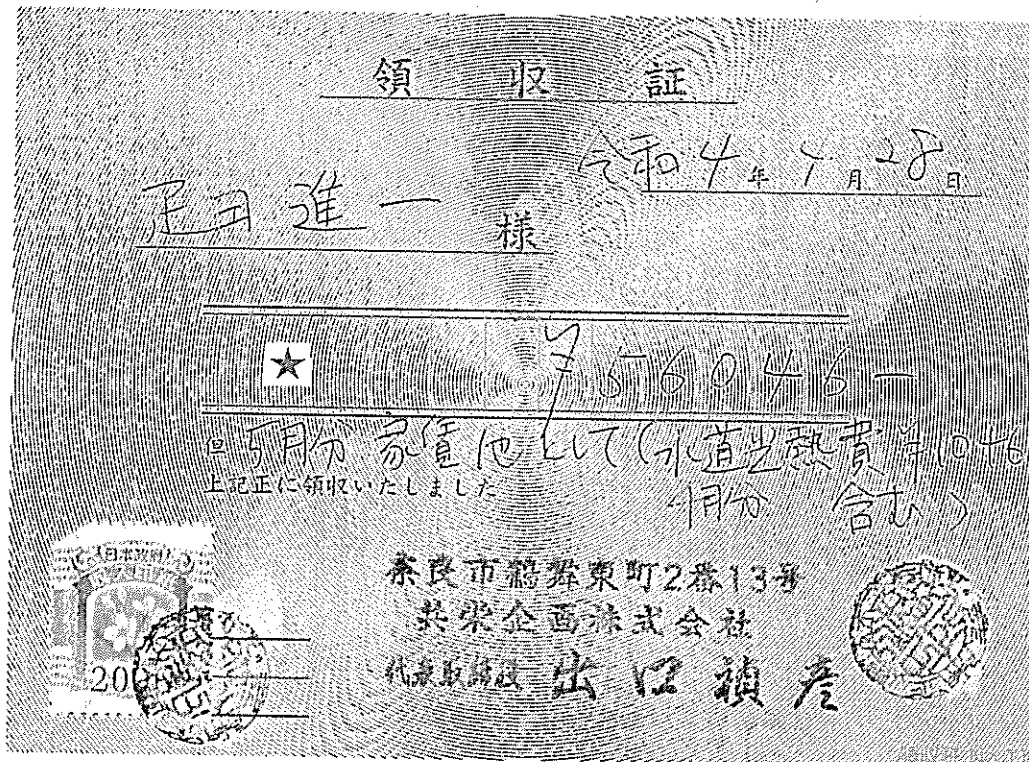 領収証
令和4年4月28日
疋田進一様
★
¥56046-
但5月分家賃他として(水道光熱費¥1046
4月分 含む)
上記正に領収いたしました
日本政府
20
奈良市鶴舞東町2番13号
共栄企画株式会社
代表取締役 出口禎彦